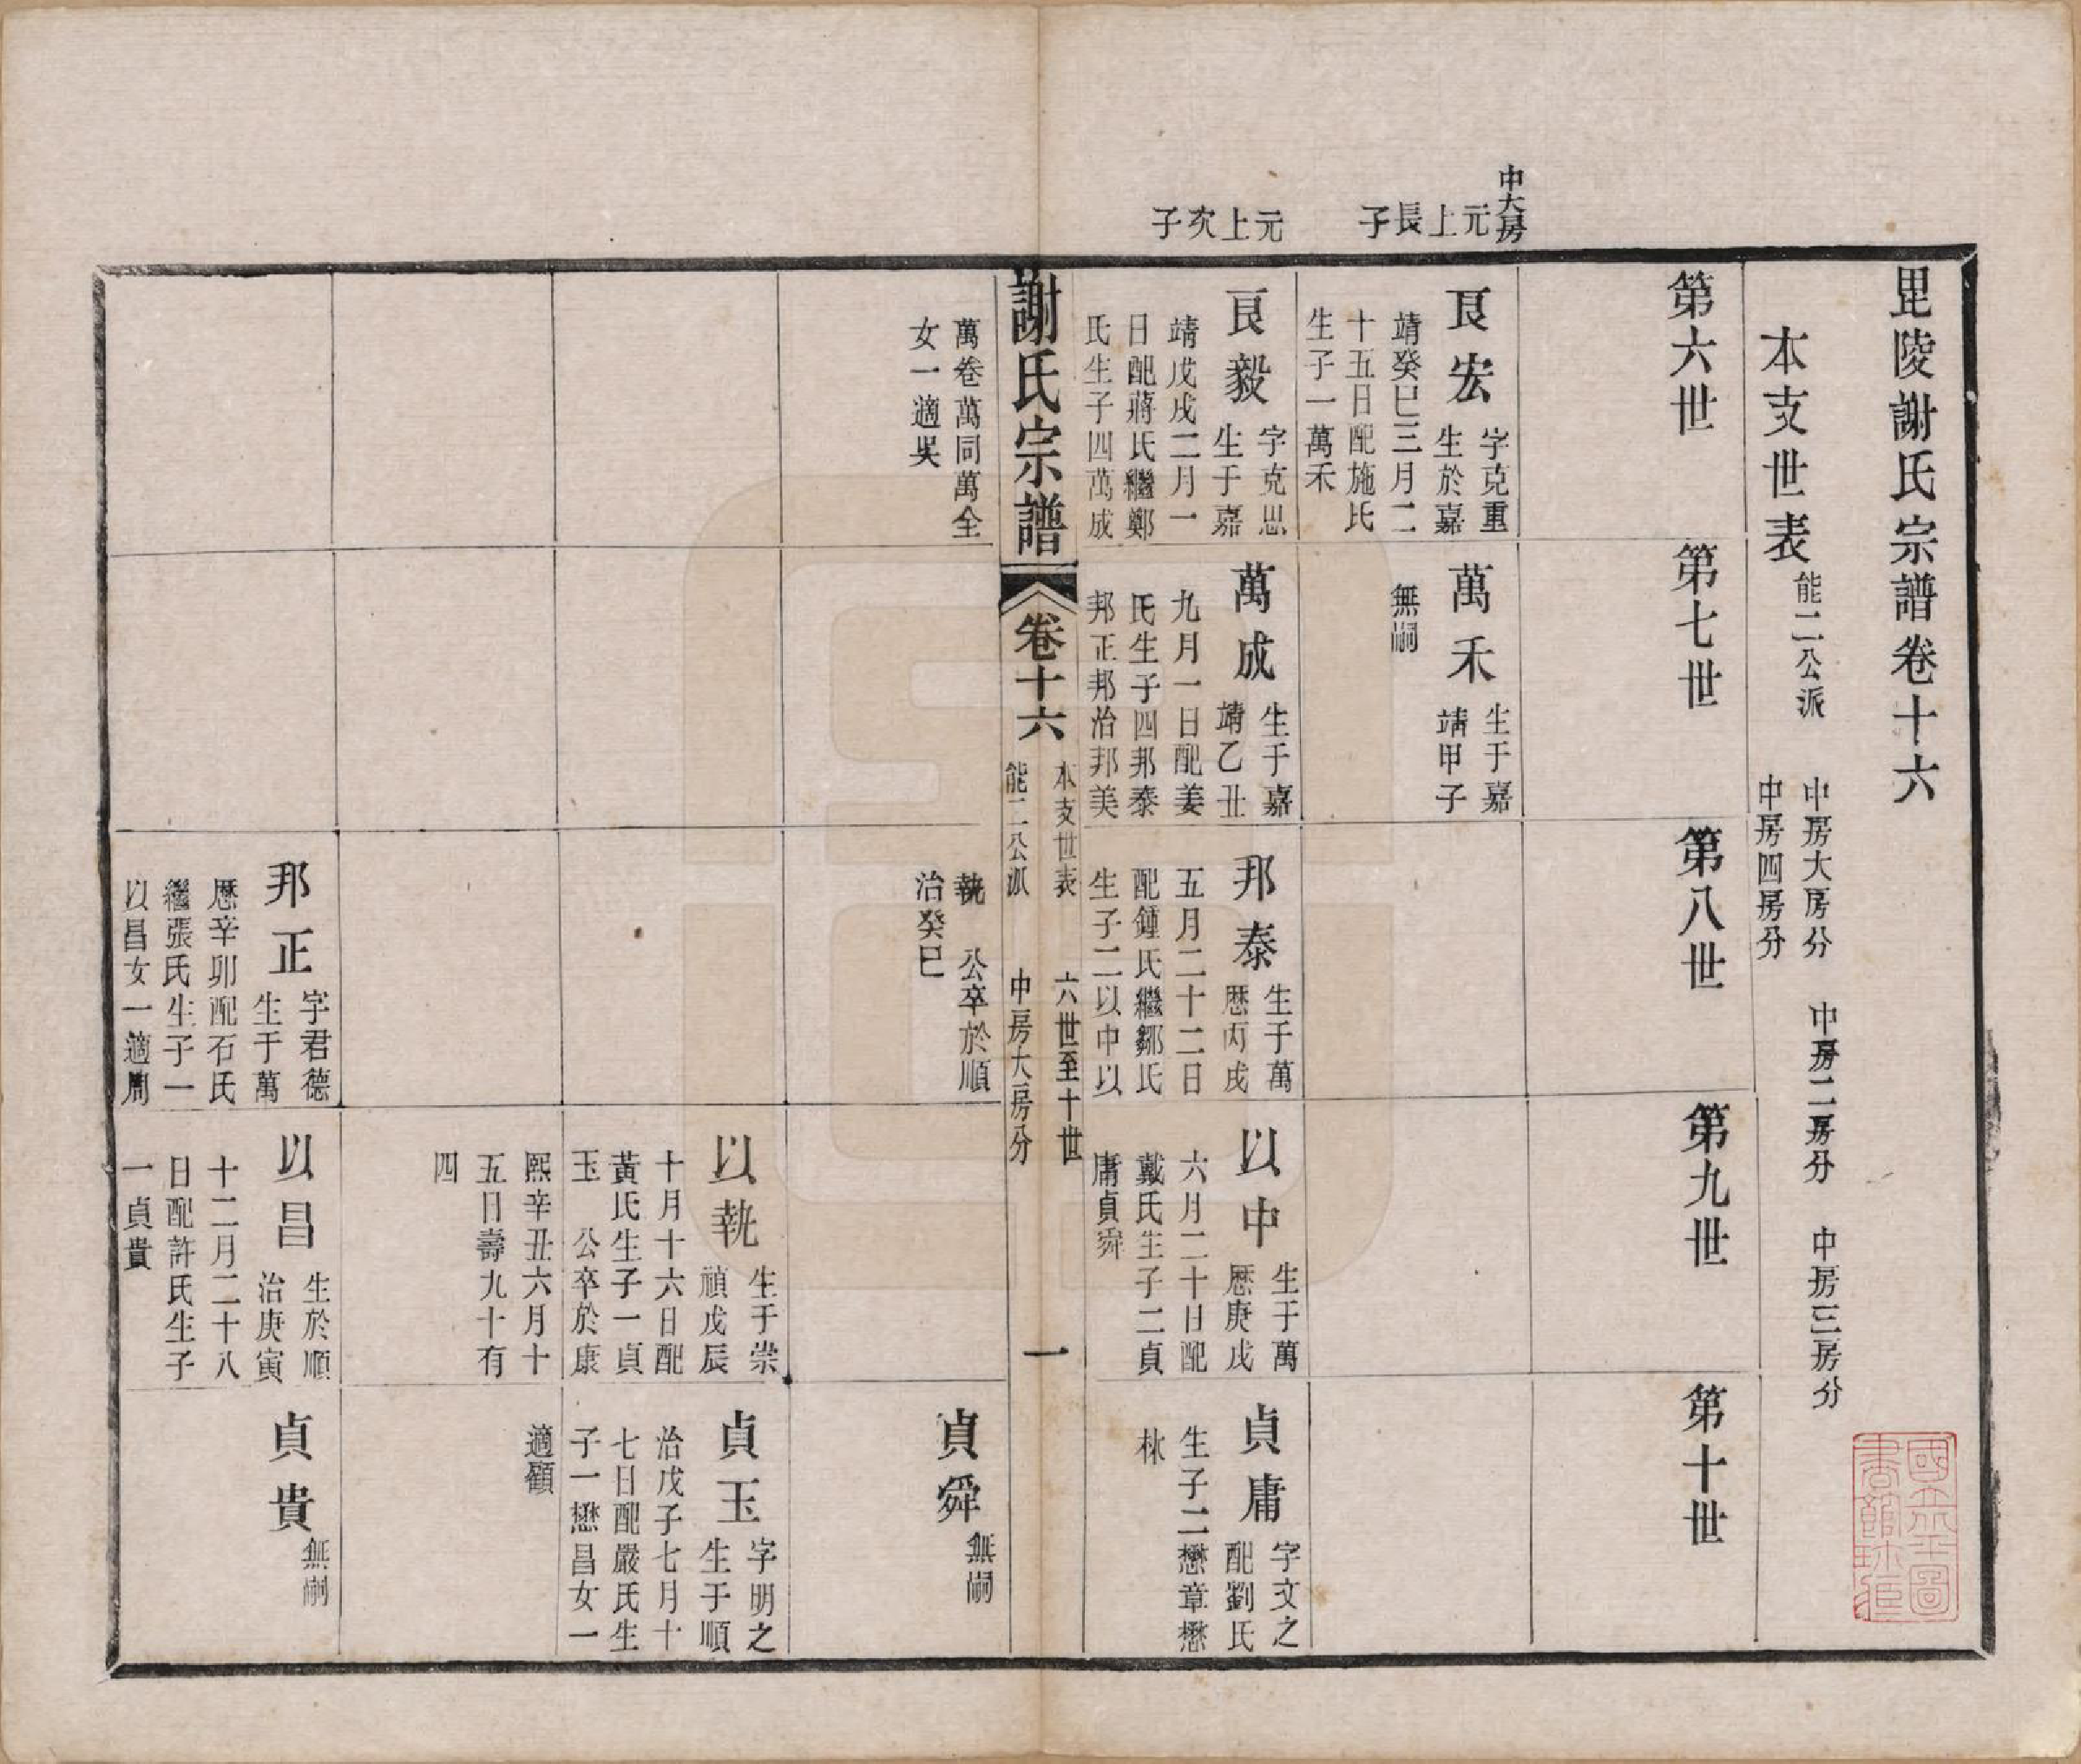 毘陵謝氏宗譜卷十六
本支世表
能二公派
中房大房分
中房二房分
中房三房分
中房四房分
第六世
第七世
第八世
第九世
第十世
中大房
元上長子
良宏
字克重
生於嘉
靖癸巳三月二
十五日配施氏
生子一萬禾
萬禾
生于嘉
靖甲子
無嗣
元上次子
良毅
字克思
生于嘉
靖戊戌二月一
日配蔣氏繼鄭
氏生子四萬成
萬成
生于嘉
靖乙丑
九月一日配姜
氏生子四邦泰
邦正邦治邦美
邦泰
生于萬
歷丙戌
五月二十二日
配鍾氏繼鄒氏
生子二以中以
以中
生于萬
歷庚戌
六月二十日配
戴氏生子二貞
庸貞舜
貞庸
字文之
配劉氏
生子二懋章懋
林
謝氏宗譜
卷十六
本支世表
能二公派
六世至十世
中房大房分
一
萬卷萬同萬全
女一適吳
執 公卒於順
治癸巳
貞舜
無嗣
以執
生于崇
禎戊辰
十月十六日配
黃氏生子一貞
玉 公卒於康
熙辛丑六月十
五日壽九十有
四
貞玉
字明之
生于順
治戊子七月十
七日配嚴氏生
子一懋昌女一
適顧
邦正
字君德
生于萬
歷辛卯配石氏
繼張氏生子一
以昌女一適周
以昌
生於順
治庚寅
十二月二十八
日配許氏生子
一貞貴
貞貴
無嗣
國立北平圖
書館珍藏